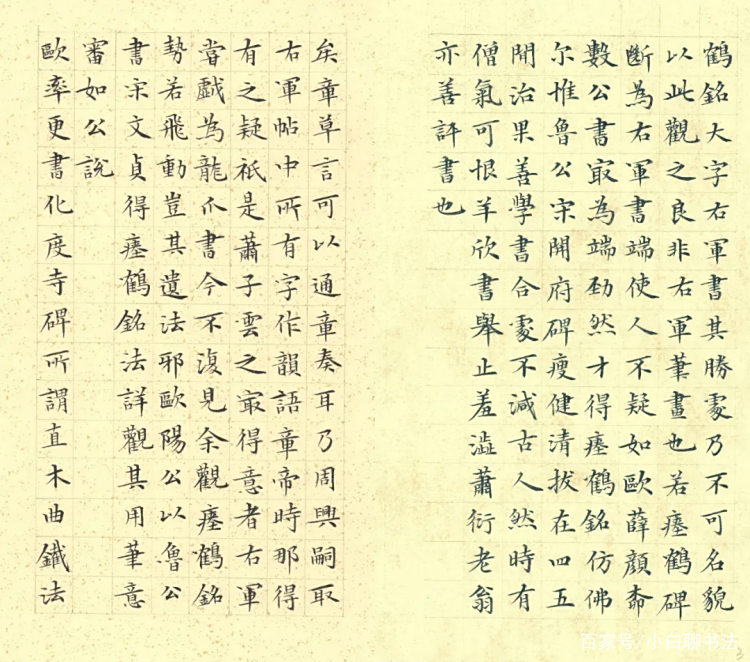 鶴銘大字右軍書其勝處乃不可名貌
以此觀之良非右軍筆畫也若瘞鶴碑
斷為右軍書端使人不疑如歐薛顏柳
數公書最為端勁然才得瘞鶴銘仿佛
尔惟魯公宋開府碑瘦健清拔在四五
間治果善學書合處不減古人然時有
僧氣可恨羊欣書舉止羞澁蕭衍老翁
亦善評書也
矣章草言可以通章奏耳乃周興嗣取
右軍帖中所有字作韻語章帝時那得
有之疑祇是蕭子雲之最得意者右軍
嘗戲為龍爪書今不復見余觀瘞鶴銘
勢若飛動豈其遺法邪歐陽公以魯公
書宋文貞得瘞鶴銘法詳觀其用筆意
審如公說
歐率更書化度寺碑所謂直木曲鐵法
百家号/小白聊书法